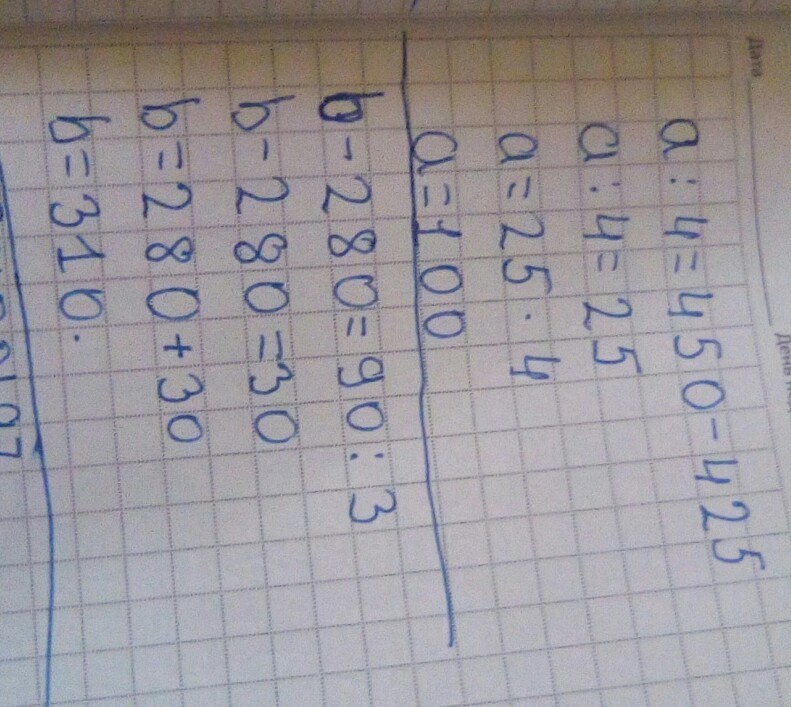 Дата
a : 4 = 450 - 425
a : 4 = 25
a = 25 · 4
a = 100
b - 280 = 90 : 3
b - 280 = 30
b = 280 + 30
b = 310.